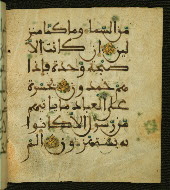 من السما وما كنا منز
لين ان كانت الا
صيحة وحدة فاذا
هم خمدون يحسرة
على العباد ما ياتيهم
من رسول الا كانوا
به يستهزون الم